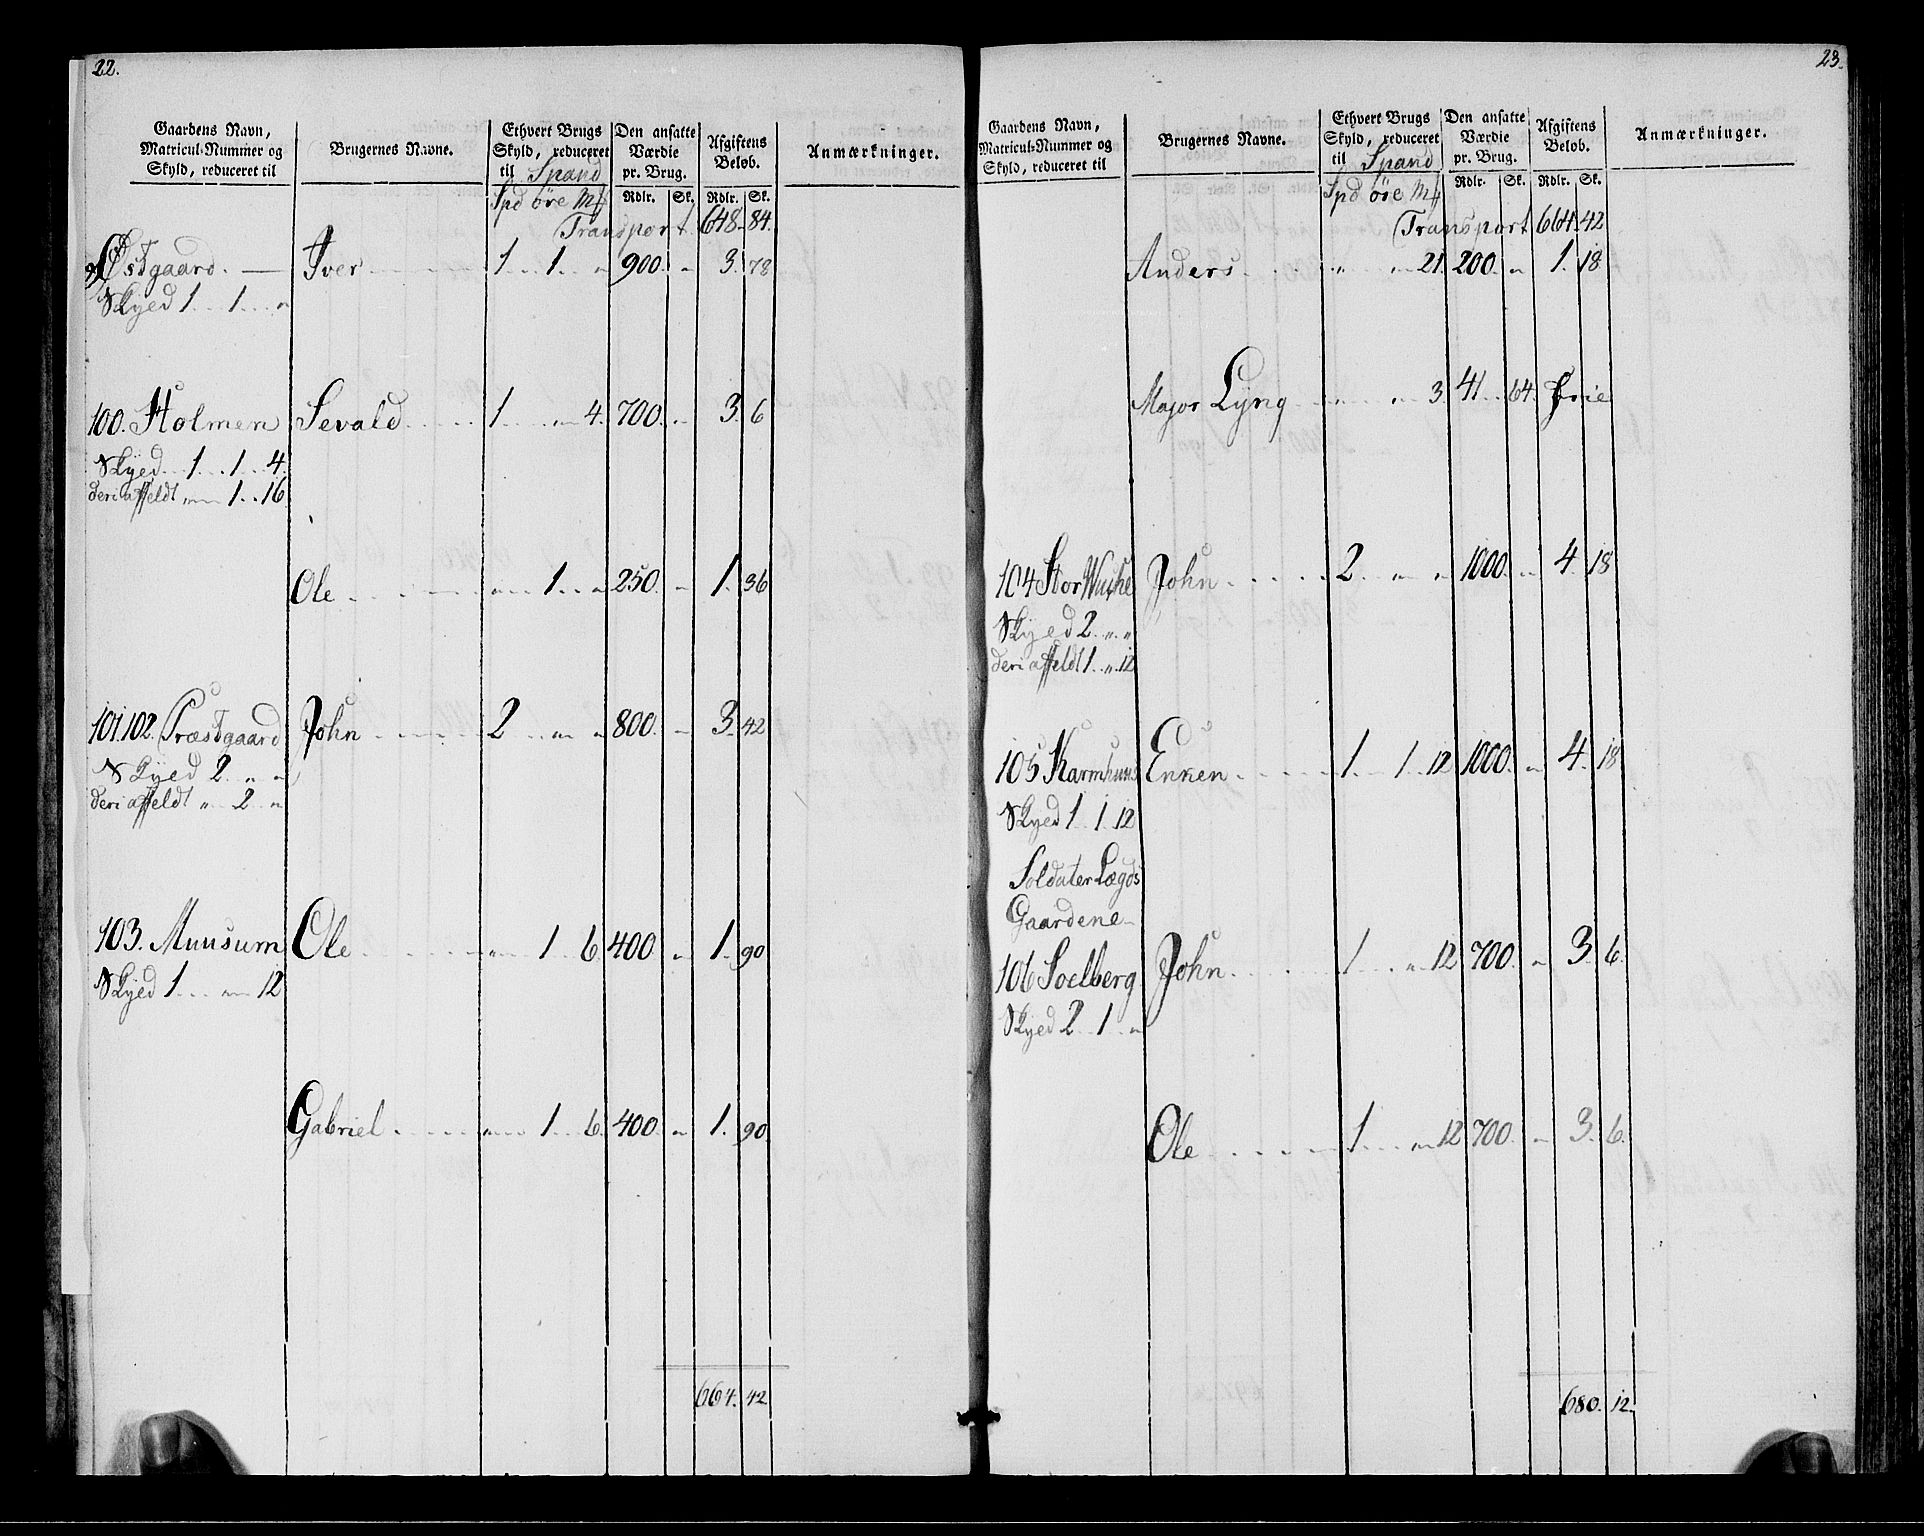 22.
Gaardens Navn, Matricul-Nummer og Skyld, reduceret til | Brugernes Navne. | Ethvert Brugs Skyld, reduceret til Spand | Den ansatte Værdie pr. Brug. | Afgiftens Beløb. | Anmærkninger.
Spd öre Mf | Rdlr. | Sk. | Rdlr. | Sk.
Transport 648 84.
Østgaard. Iver 1 1 " 900. " 3. 78
Skyed 1 1 "
100. Holmen Sevald 1 " 4. 700. " 3. 6
Skyed 1 1 4.
deri affeldt " 1 16
Ole " 1 " 250. " 1. 36
101.102. Præstgaard John 2 " " 800. " 3. 42
Skyed 2. " "
deri affeldt " 2 "
103. Muusum Ole " 1 6 400 " 1. 90
Skyed 1 " 12
Gabriel " 1 6. 400. " 1. 90.
664. 42
23.
Gaardens Navn, Matricul-Nummer og Skyld, reduceret til | Brugernes Navne. | Ethvert Brugs Skyld, reduceret til Spand | Den ansatte Værdie pr. Brug. | Afgiftens Beløb. | Anmærkninger.
Spd öre Mf | Rdlr. | Sk. | Rdlr. | Sk.
Transport 664. 42
Anders " " 21. 200. " 1. 18
Major Lyng " " 3. 41. 64. Frie
104 Stor John 2 " " 1000. " 4. 18
Skyed 2. " "
deri affeldt 1 " 12
105 Karmhuus Enken 1 1 12 1000. " 4. 18
Skyed 1 1 12
Soldater Lægds
Gaardene
106 Soelberg John 1 " 12 700. " 3. 6.
Skyed 2 1 "
Ole 1 " 12 700. " 3. 6.
680. 12.